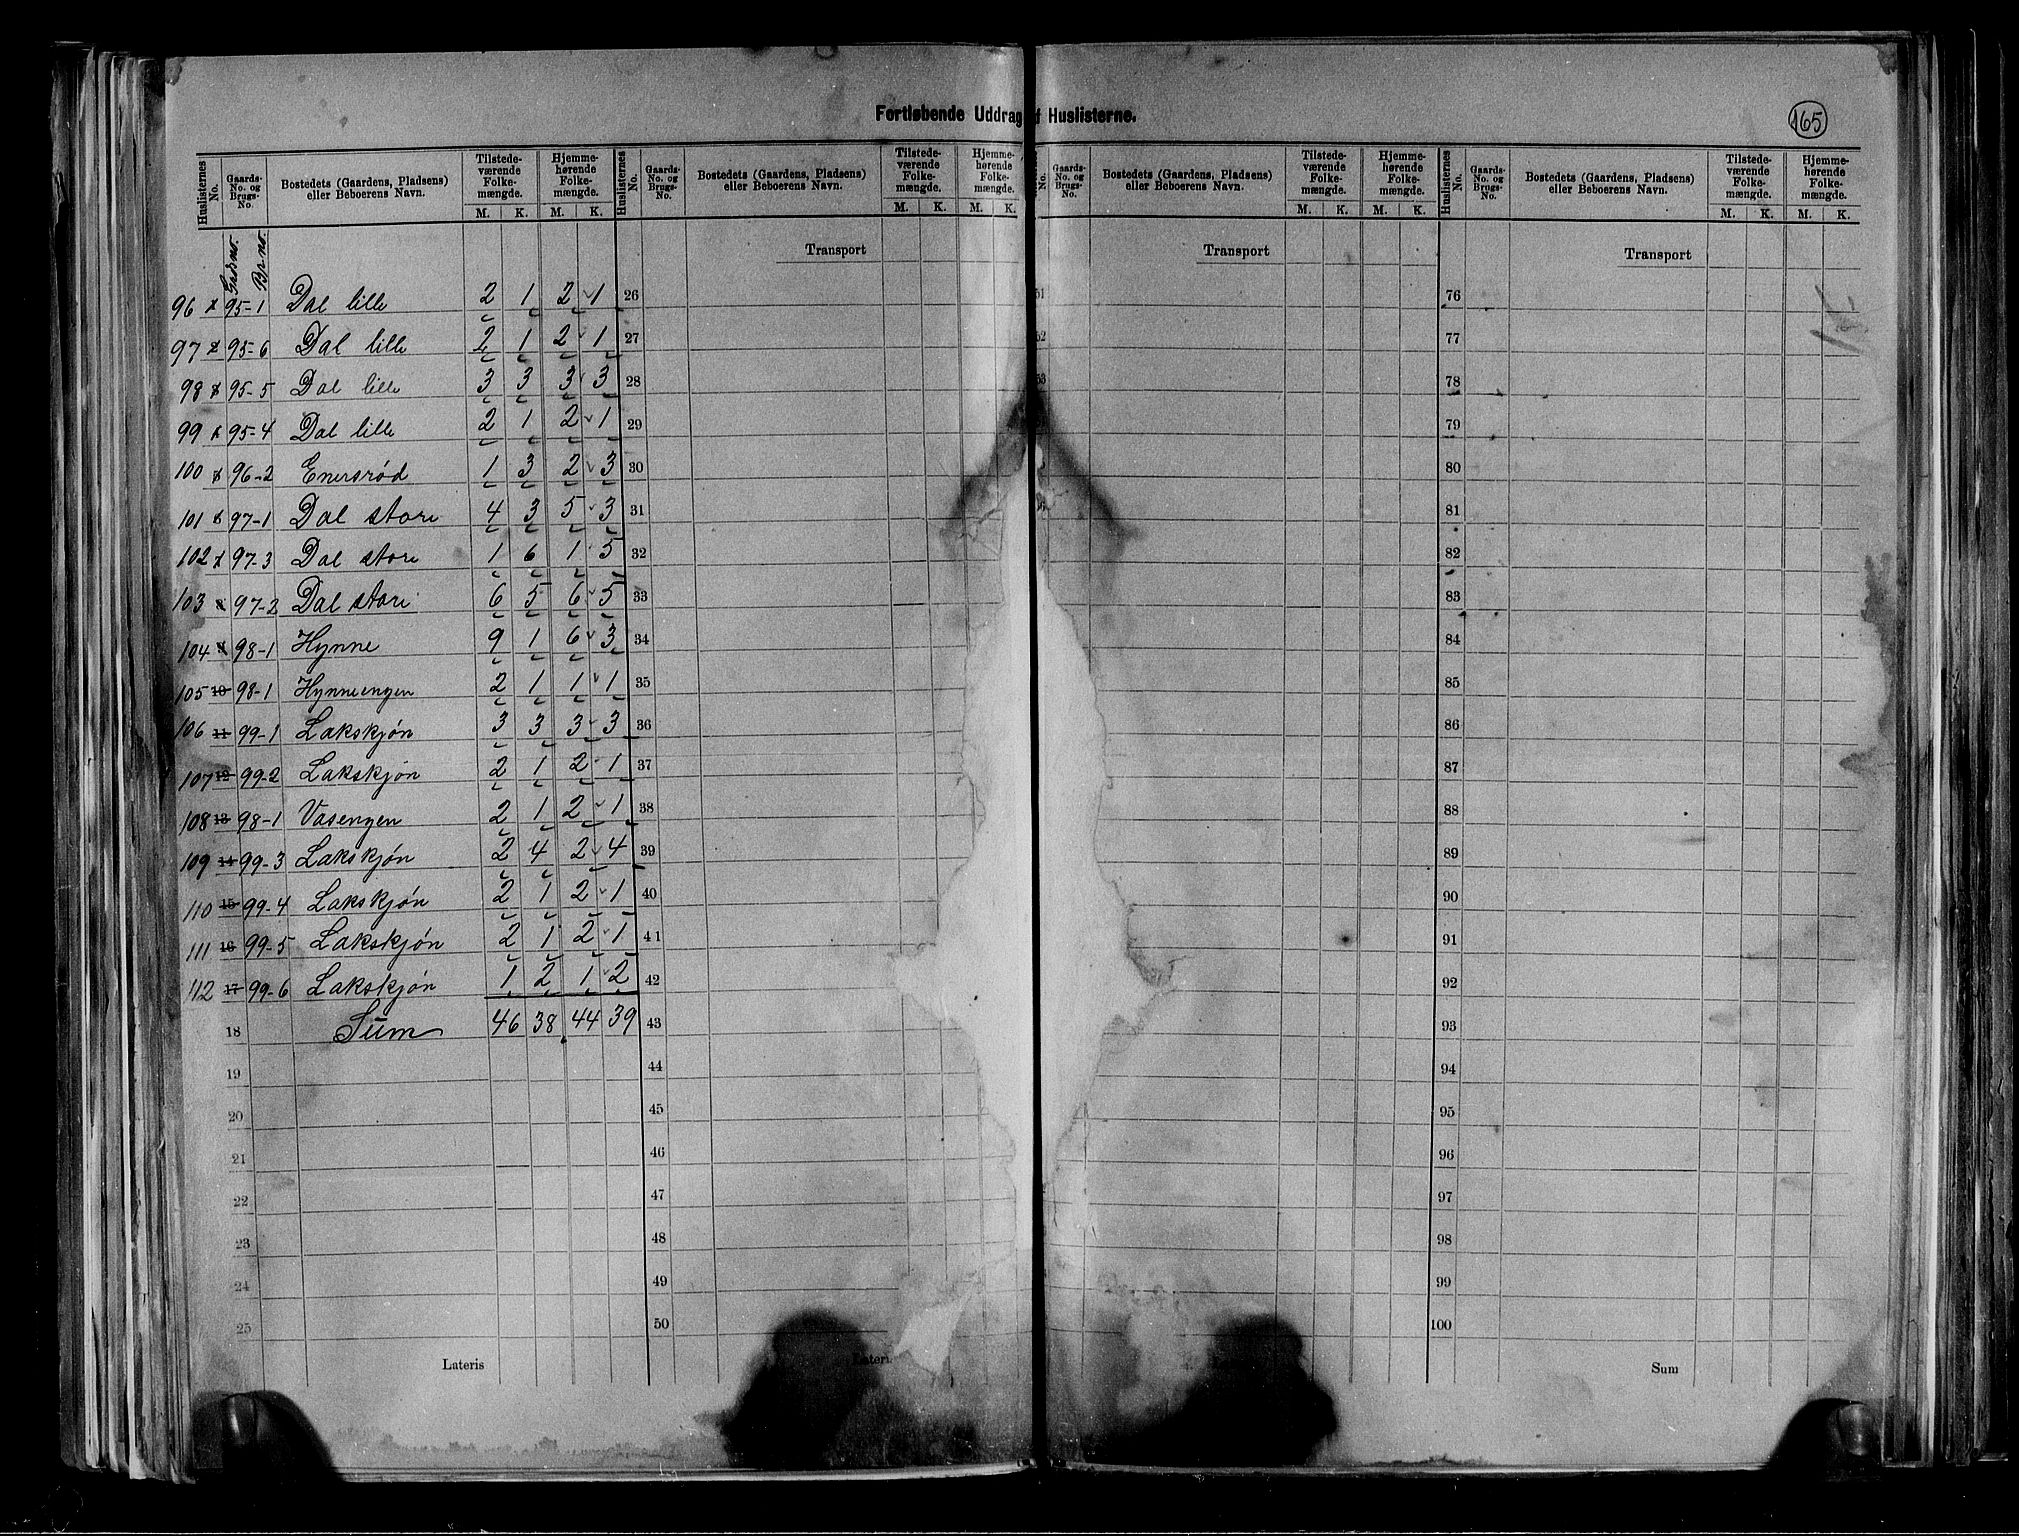 Fortløbende Uddrag af Huslisterne.
165
Huslisternes No. Gaards-No. og Brugs-No. Bostedets (Gaardens, Pladsens) eller Beboerens Navn. Tilstedeværende Folkemængde. M. K. Hjemmehørende Folkemængde. M. K.
Huslisternes No. Gaards-No. og Brugs-No. Bostedets (Gaardens, Pladsens) eller Beboerens Navn. Tilstedeværende Folkemængde. M. K. Hjemmehørende Folkemængde. M. K.
No. Gaards-No. og Brugs-No. Bostedets (Gaardens, Pladsens) eller Beboerens Navn. Tilstedeværende Folkemængde. M. K. Hjemmehørende Folkemængde. M. K.
Huslisternes No. Gaards-No. og Brugs-No. Bostedets (Gaardens, Pladsens) eller Beboerens Navn. Tilstedeværende Folkemængde. M. K. Hjemmehørende Folkemængde. M. K.
Grdsno. Br no.
Transport Transport Transport
96 95-1 Dal lille 2 1 2 1 26 51 76
97 95-6 Dal lille 2 1 2 1 27 52 77
98 95-5 Dal lille 3 3 3 3 28 53 78
99 95-4 Dal lille 2 1 2 1 29 79
100 96-2 Enersrød 1 3 2 3 30 80
101 97-1 Dal store 4 3 5 3 31 56 81
102 97-3 Dal store 1 6 1 5 32 82
103 97-2 Dal store 6 5 6 5 33 83
104 98-1 Hynne 9 1 6 3 34 84
105 10 98-1 Hynneengen 2 1 1 1 35 85
106 11 99-1 Lakskjøn 3 3 3 3 36 86
107 12 99-2 Lakskjøn 2 1 2 1 37 87
108 13 98-1 Vasengen 2 1 2 1 38 88
109 14 99-3 Lakskjøn 2 4 2 4 39 89
110 15 99-4 Lakskjøn 2 1 2 1 40 90
111 16 99-5 Lakskjøn 2 1 2 1 41 91
112 17 99-6 Lakskjøn 1 2 1 2 42 92
18 Sum 46 38 44 39 43 93
19 44 94
20 45 95
21 46 96
22 47 97
23 48 98
24 49 99
25 50 100
Lateris Lateri Sum